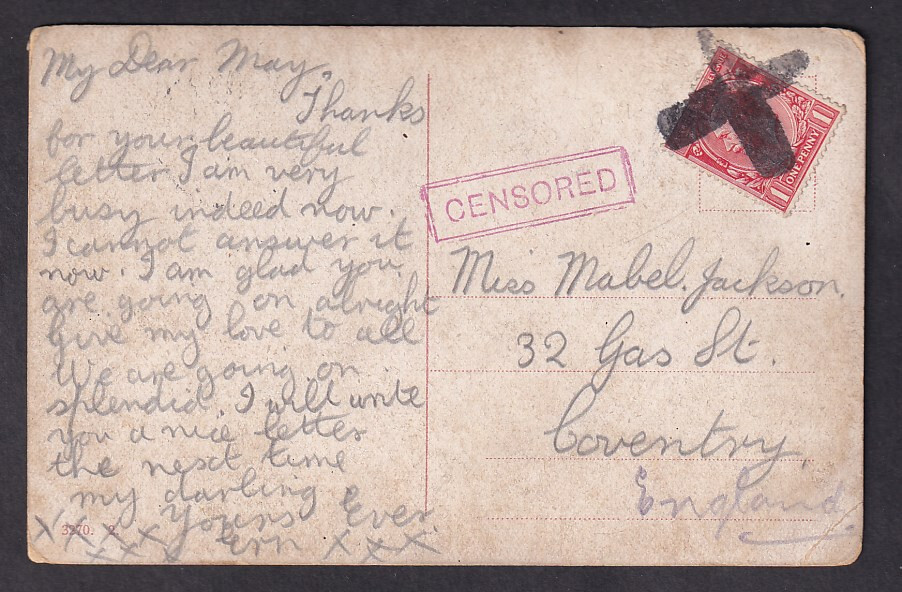 My Dear May,
Thanks
for your beautiful
letter I am very
busy indeed now.
I cannot answer it
now. I am glad you
are going on alright
give my love to all
We are going on
splendid. I will write
you a nice letter
the next time
my darling
Yours Ever.
Ern x x x x
x x x x x x x
3270. 2.
CENSORED
ONE PENNY
1 1
Miss Mabel. Jackson.
32 Gas St.
Coventry
England